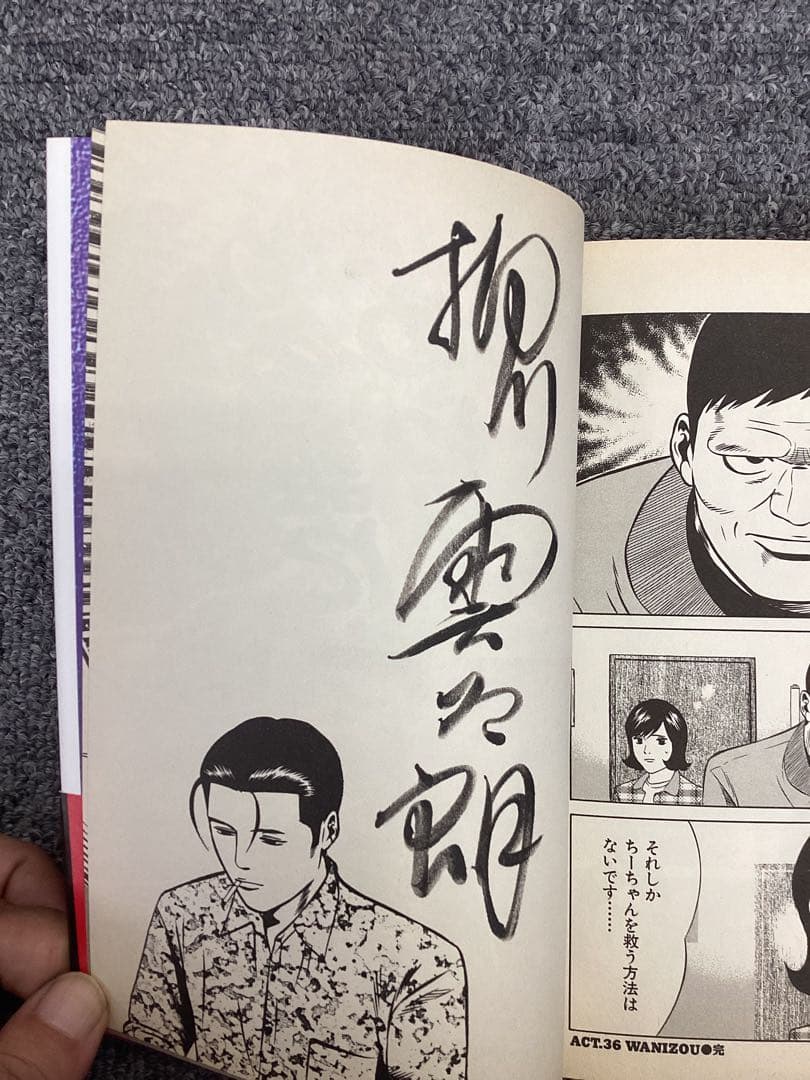 それしか
ちーちゃんを救う方法は
ないです……
ACT.36 WANIZOU●完
柳川雲